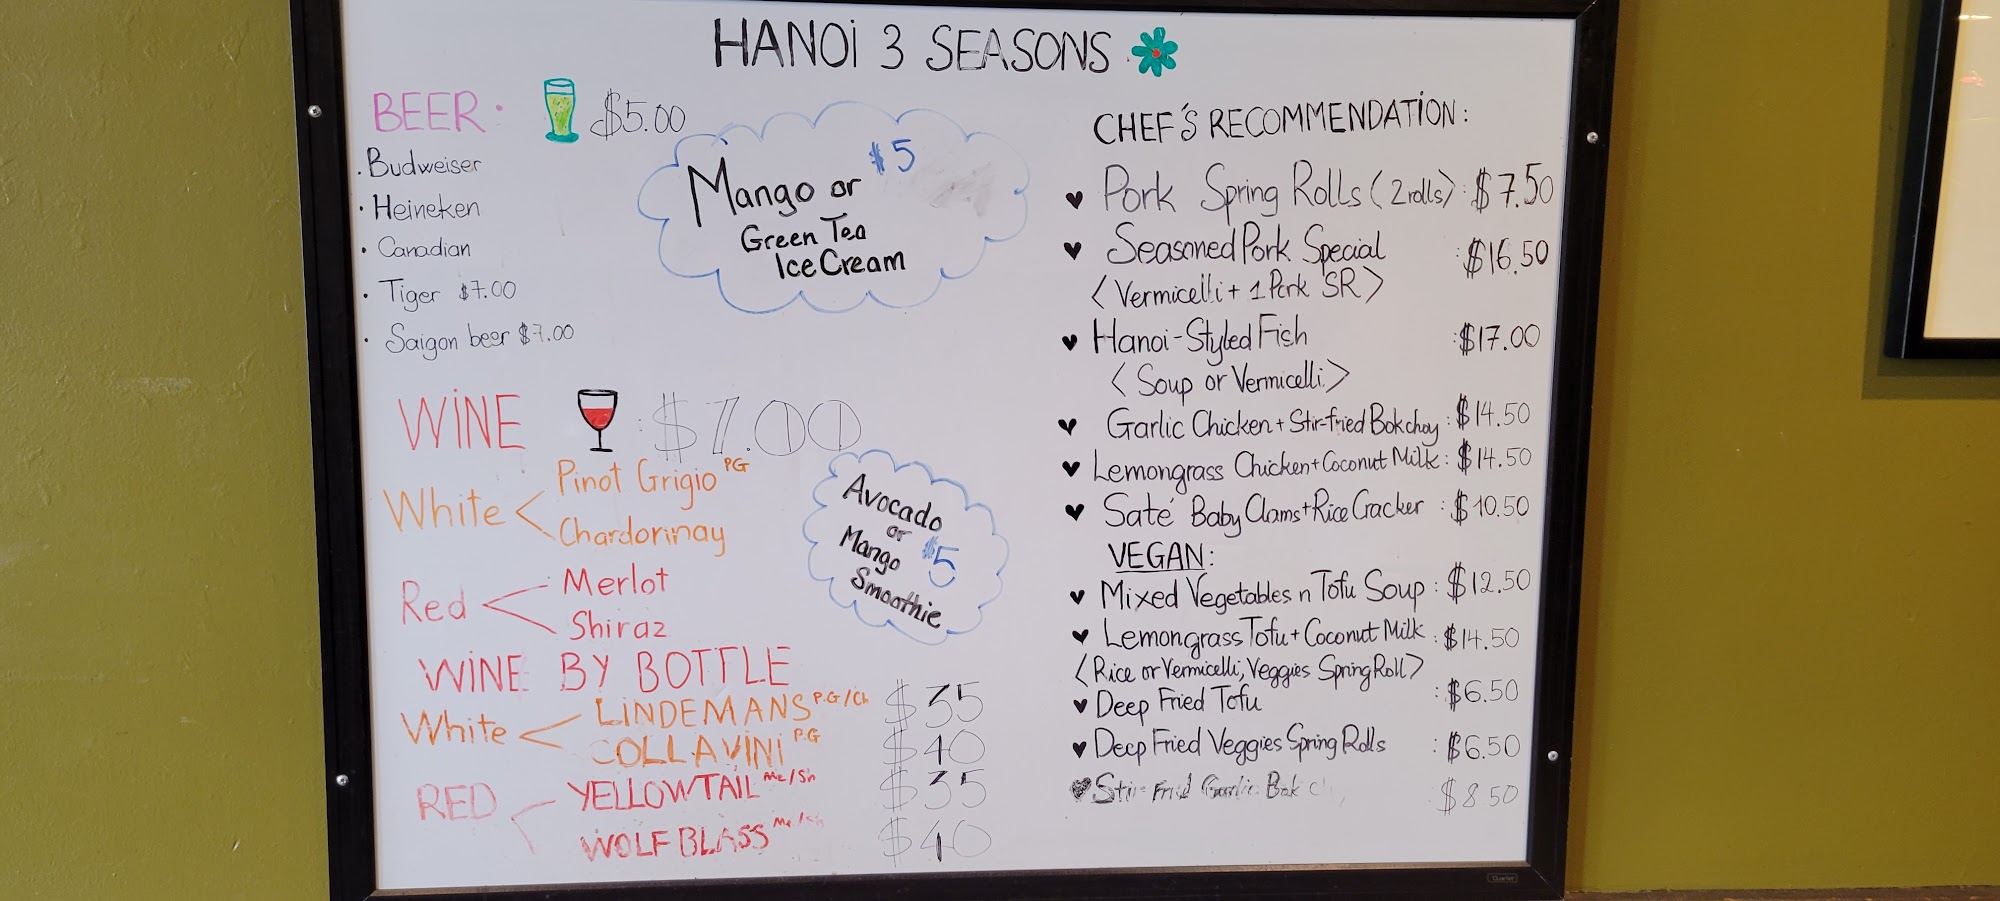 HANOi 3 SEASONS
BEER: $5.00
· Budweiser
· Heineken
· Canadian
· Tiger $7.00
· Saigon beer $7.00
Mango or $5
Green Tea
Ice Cream
WiNE : $7.00
White < Pinot Grigio PG
Chardorinay
Red < Merlot
Shiraz
Avocado
or
Mango $5
Smoothie
WiNE BY BOTTLE
White < LiNDEMANS P.G/Ch $35
COLLAViNi P.G $40
RED < YELLOWTAiL Me/Sh $35
WOLF BLASS Me/Sh $40
CHEF'S RECOMMENDATiON:
♥ Pork Spring Rolls (2 rolls): $7.50
♥ Seasoned Pork Special : $16.50
<Vermicelli + 1 Pork SR>
♥ Hanoi-Styled Fish : $17.00
<Soup or Vermicelli>
♥ Garlic Chicken + Stir-fried Bokchoy : $14.50
♥ Lemongrass Chicken + Coconut Milk : $14.50
♥ Saté Baby Clams + Rice Cracker : $10.50
VEGAN:
♥ Mixed Vegetables n Tofu Soup : $12.50
♥ Lemongrass Tofu + Coconut Milk : $14.50
<Rice or Vermicelli, Veggies Spring Roll>
♥ Deep Fried Tofu : $6.50
♥ Deep Fried Veggies Spring Rolls : $6.50
♥ Stir Fried Garlic Bok $8.50
Quartet